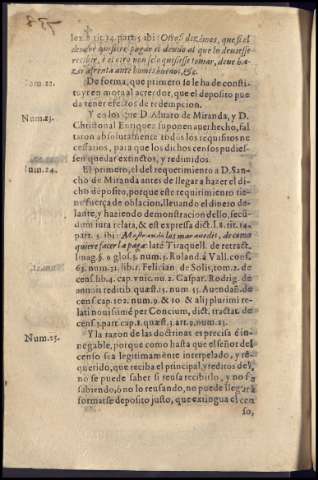 lex 8. tit. 14. part. 5. ibi: Otrosi dezimos, que si el
deudor quisiere pagar el deudo al que lo deuiesse
recibir, è el otro non selo quisiesse tomar, deue ha-
zar afrenta ante homes buenos, &c.
Num.22.
De forma, que primero le ha de consti-
tuyr en mora al acreedor, que el deposito pue-
da tener efectos de redempcion.
Num.23.
Y en los que D. Aluaro de Miranda, y D.
Christoual Enriquez suponen auer hecho, fal
taron absolutamente todos los requisitos ne
cessarios, para que los dichos censos pudies-
sen quedar extinctos, y redimidos.
Num.24.
El primero, el del requerimiento a D. San-
cho de Miranda antes de llegar a hazer el di-
cho deposito, porque este requirimiento tie-
ne fuerça de oblacion, lleuando el dinero de-
lante, y haziendo demonstracion dello, secũ-
dum iura relata, & est expressa dict. l. 8. tit. 14.
part. 5. ibi:
quiere facer la paga: latè Tiraquell. de retract.
linag. §. glos. 3. num. 5. Roland. à Vall. cons.
65. num. 31. lib. 1. Felician. de Solis, tom. 2. de
cens. lib. 4. cap. vnic. nu. 2. Gaspar. Rodrig. de
annuis reditib. quæst. 15. num. 15. Auendañ. de
cens. cap. 102. num. 9. & 10. & alij plurimi re-
lati nouissimè per Concium, dict. tractat. de
cens. 3. part. cap. 1. quæst. 3. art. 2. num. 25.
Num.25.
Y la razon de las doctrinas es precisa è in-
negable, porque como hasta que el señor del
censo sea legitimamente interpelado, y re-
querido, que reciba el principal, y reditos del,
no se puede saber si reusa recibirlo, y no s
sabiendo, ò no lo reusando, no puede llegar a
formarse deposito justo, que extingua el cen
so,